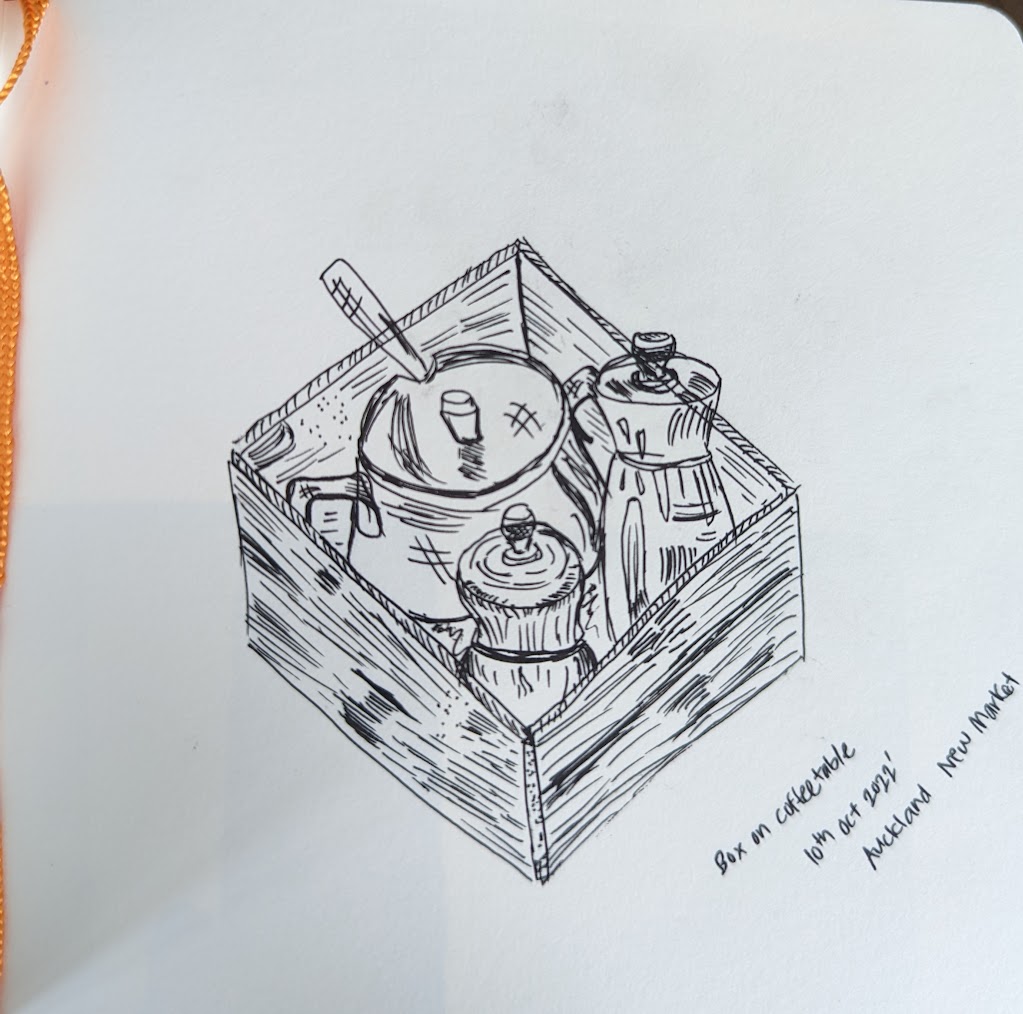 Box on coffeetable
10th oct 2022'
Auckland New Market